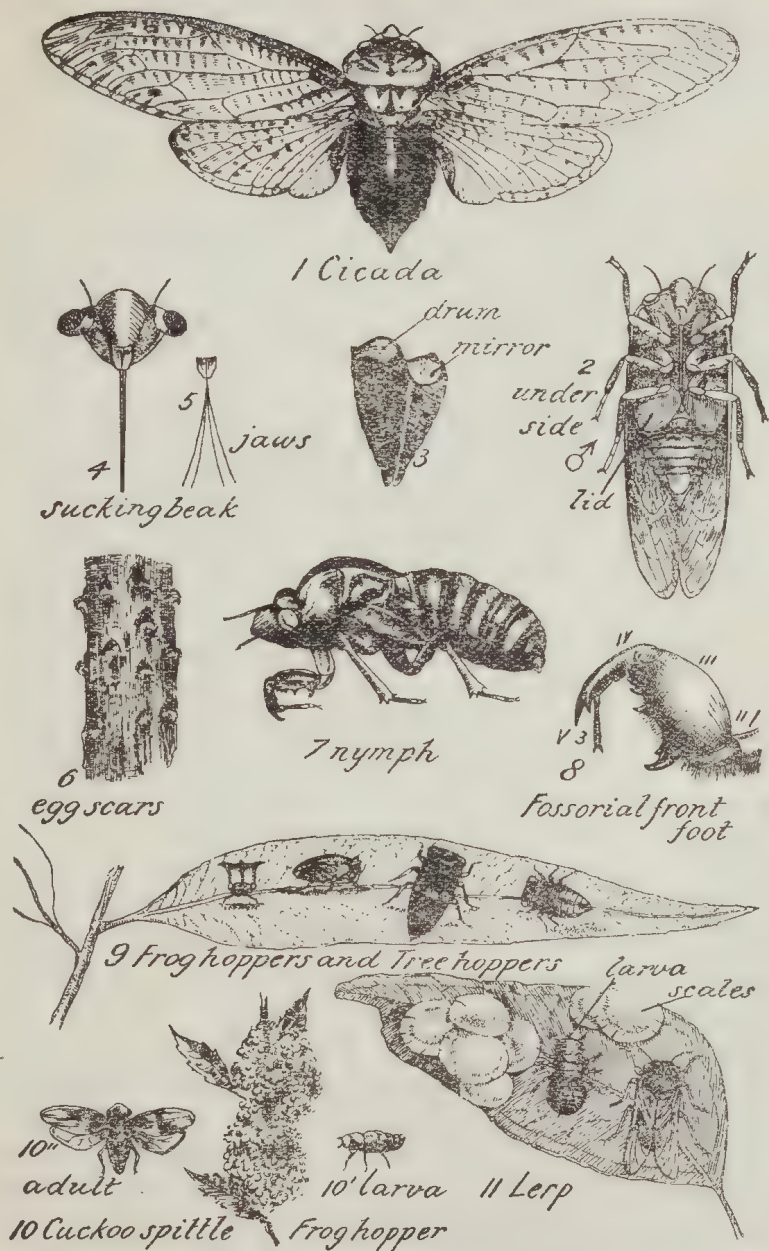 1 Cicada
drum
mirror
2
under
side
♂
lid
3
4
sucking beak
5
jaws
6
egg scars
7 nymph
IV
III
II
I
V
3
8
Fossorial front
foot
9 Frog hoppers and Tree hoppers
larva
scales
10"
adult
10' larva
11 Lerp
10 Cuckoo spittle Frog hopper